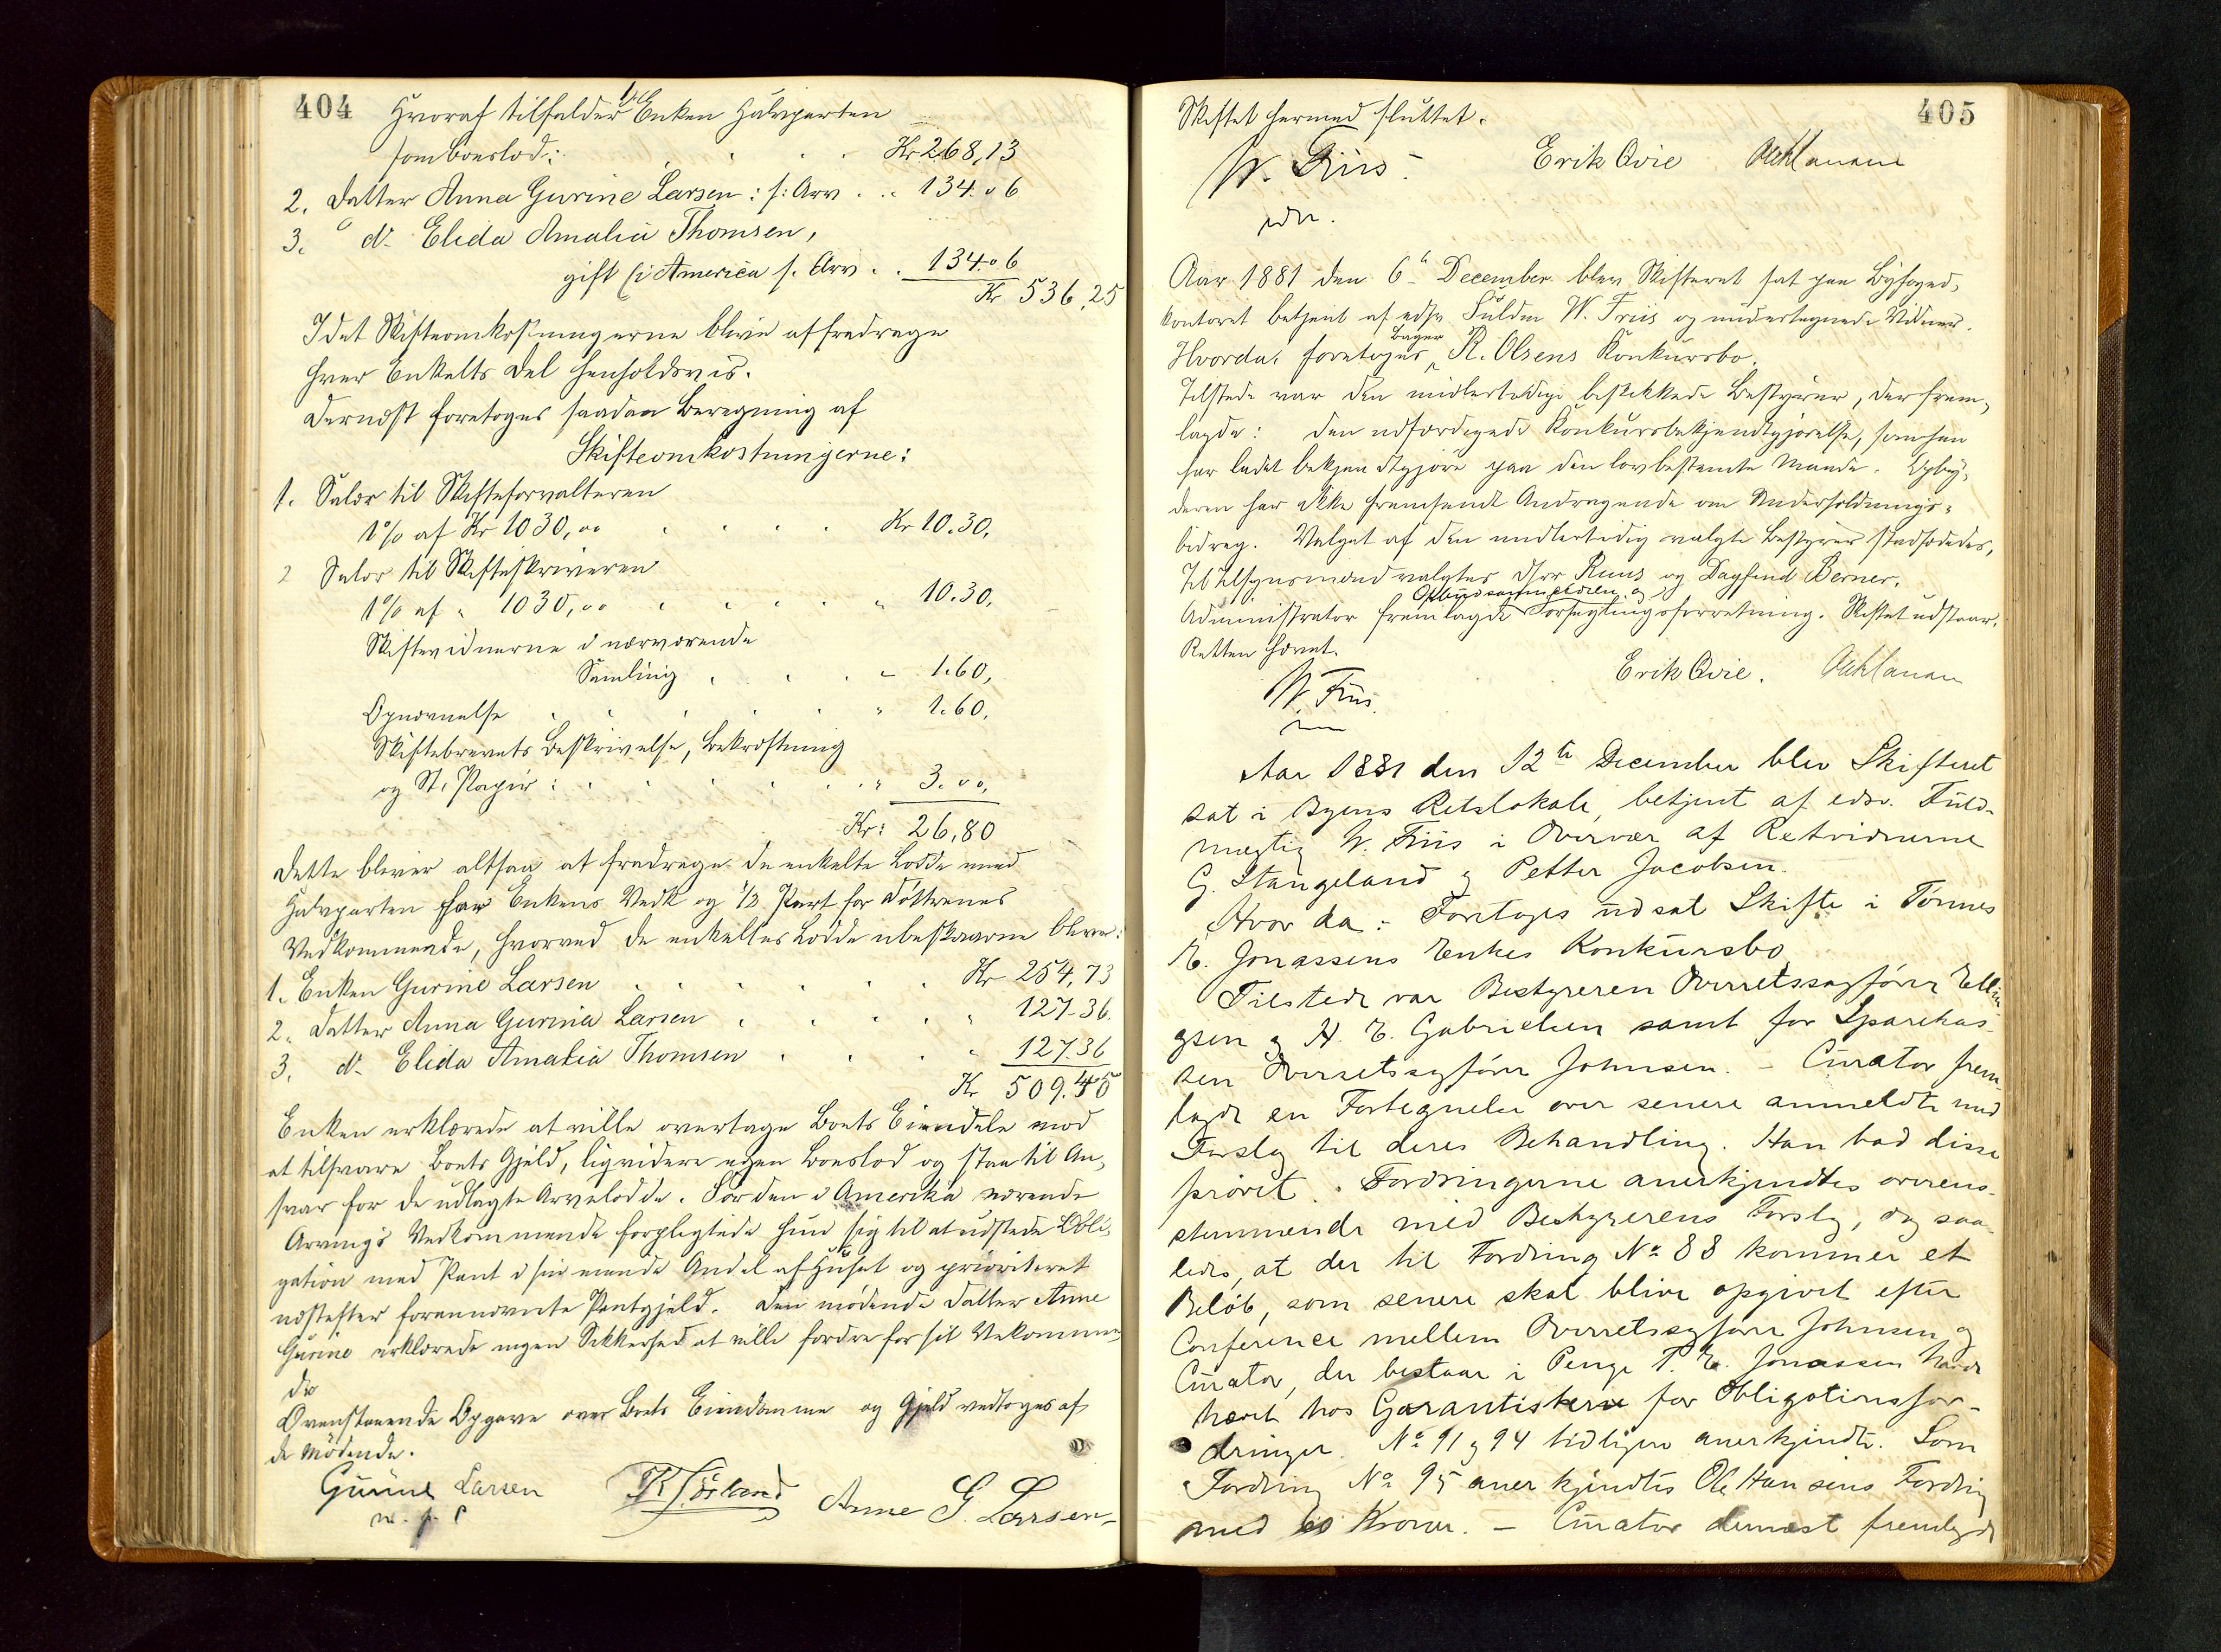 404
Hvoraf tilfalder 1/ Enken Halvparten
som Boeslod: . . . Kr 268,13
2. Datter Anna Gurine Larsen: s: Arv . . 134.06
3. do Elida Amalia Thomsen,
gift (i America s. Arv . . 134.06
Kr 536,25
Idet Skifteomkostningerne blive at fradrage
hver Enkelts Del henholdsvis.
Dernæst foretoges saadan Beregning af
Skifteomkostningerne:
1. Salær til Skifteforvalteren
1% af Kr 1030,00 . . . . Kr 10.30,
2 Salær til Skifteskriveren
1% af " 1030,00 . . . . " 10.30,
Skiftevidnerne i nærværende
Samling . . . " 1.60,
Opnævnelse . . . . " 1.60,
Skiftebrevets Beskrivelse, Bekræftning
og St. Papir: . . . . . " 3.00,
Kr: 26,80
Dette bliver altsaa at fradrage de enkelte Lodder med
Halvparten for Enkens Vedk og 1/2 Part for Døttrenes
Vedkommende, hvorved de enkeltes Lodde ubeskaarne bliver:
1. Enken Gurine Larsen . . . . . . Kr 254,73
2. Datter Anna Gurina Larsen . . . . " 127-36.
3. do Elida Amalia Thomsen . . . " 127.36
Kr 509.45
Enken erklærede at ville overtage Boets Eiendele mod
at tilsvare Boets Gjeld, liqvidere egen Boeslod og staa til An-
svar for de udlagte Arvelodde. For den i Amerika værende
Arvings Vedkommende forpligtede hun sig til at udstede Obli-
gation med Pant i sin eiende Andel af Huset og prioriteret
næstefter forannævnte Pantgjeld. Den mødende Datter Anne
Gurine erklærede ingen Sikkerhed at ville fordre for sit Vekommen-
de
Ovenstaaende Opgave over Boets Eiendomme og Gjeld vedtoges af
de Mødende.
Gurine Larsen
m. p. P
Anne G. Larsen
405
Skiftet hermed sluttet.
W. Friis
Erik Qvie
Aar 1881 den 6te December blev Skifteret sat paa Byfoged-
kontoret betjent af edsv Fuldm W. Friis og undertegnede Vidner.
Hvorda: foretoges Bager R. Olsens Konkursbo.
Tilstede var den midlertidige beskikkede Bestyrer, der frem-
lagde: den udfærdigede Konkursbekjendtgjørelse, som han
har ladet bekjendtgjøre paa den lovbestemte Maade. Opby-
deren har ikke fremsendt Andragende om Underholdnings-
bidrag. Valget af den midlertidig valgte Bestyrer stadfæstedes,
Til Tilsynsmænd valgtes Dhrr Ruus og Dagfind Berner.
Administrator fremlagde Opbudsanmeldelsen og Forseglingsforretning. Skiftet udstaar.
Retten hævet.
W. Friis.
Erik Qvie.
Aar 1881 den 12te December blev Skifteret
sat i Byens Retslokale, betjent af edsv. Fuld-
mægtig W. Friis i Overvær af Retvidnerne
G. Stangeland og Petter Jacobsen.
Hvor da: Foretoges udsat Skifte i Tønnes
E. Jonassens Enkes Konkursbo
Tilstede var Bestyreren Overretssagfører Ellin-
gsen og H. E. Gabrielsen samt for Sparekas-
sen Overretssagfører Johnsen. – Curator frem-
lagde en Fortegnelse over senere anmeldte med
Forslag til deres Behandling. Han bad disse
prøvet. Fordringerne anerkjendtes overens-
stemmende med Bestyrerens Forslag, dog saa-
ledes, at der til Fordring No 88 kommer et
Beløb, som senere skal blive opgivet efter
Conference mellem Overretssagfører Johnsen og
Curator, der bestaar i Penge T. E. Jonassen havde
hævet hos Garantisterne for Obligationsfor-
dringer. No 91 og 94 tidligere anerkjendte. Som
Fordring No 95 anerkjendtes Ole Hansens Fordring
med 60 Kroner. – Curator dernæst fremlagde